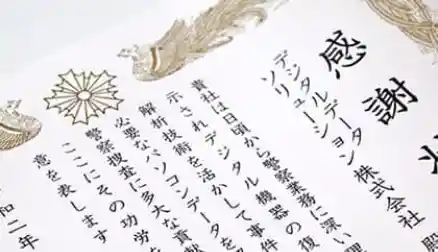 感謝状
デジタルデータソリューション株式会社 殿
貴社は日頃から警察業務に深い
示されデジタル機器の復
解析技術を活かして事件
必要なパソコンデータを
警察捜査に多大な貢献
ここにその功労を
意を表します
和二年